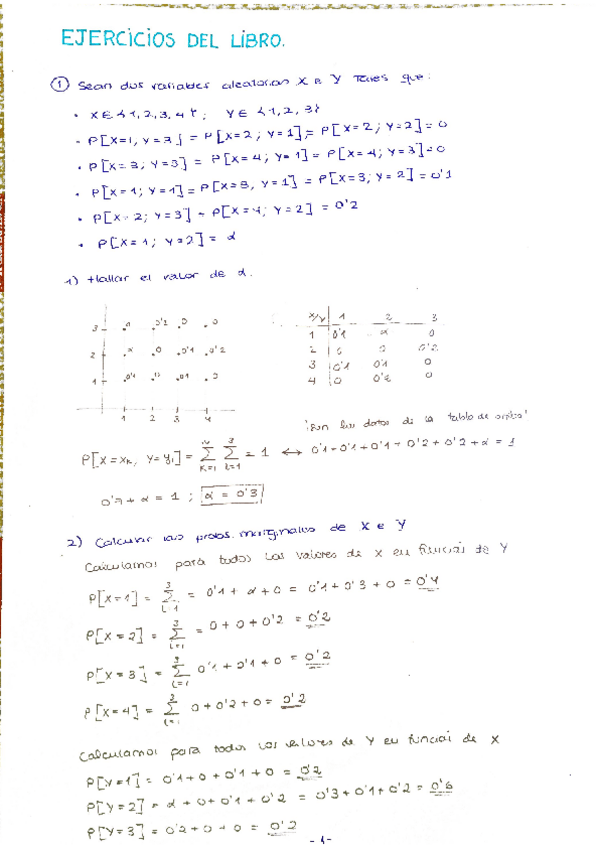 EJERCICIOS DEL LIBRO.
① Sean dos variables aleatorias X e Y tales que:
• X ∈ {1, 2, 3, 4}; Y ∈ {1, 2, 3}
• P[X=1, Y=3] = P[X=2; Y=1] = P[X=2; Y=2] = 0
• P[X=3; Y=3] = P[X=4; Y=1] = P[X=4; Y=3] = 0
• P[X=1; Y=1] = P[X=3, Y=1] = P[X=3; Y=2] = 0'1
• P[X=2; Y=3] = P[X=4; Y=2] = 0'2
• P[X=1; Y=2] = α
1) Hallar el valor de α.
3 0 0'2 0 0
2 α 0 0'1 0'2
1 0'1 0 0'1 0
1 2 3 4
X/Y 1 2 3
1 0'1 α 0
2 0 0 0'2
3 0'1 0'1 0
4 0 0'2 0
¡Son los datos de la tabla de arriba!
P[X=xₖ, Y=yᵢ] = Σ Σ = 1 ↔ 0'1+0'1+0'1+0'2+0'2+α = 1
0'7 + α = 1 ; α = 0'3
2) Calcular las probs. marginales de X e Y
Calculamos para todos los valores de X en función de Y
P[X=1] = Σ = 0'1 + α + 0 = 0'1 + 0'3 + 0 = 0'4
P[X=2] = Σ = 0 + 0 + 0'2 = 0'2
P[X=3] = Σ 0'1 + 0'1 + 0 = 0'2
P[X=4] = Σ 0 + 0'2 + 0 = 0'2
Calculamos para todos los valores de Y en función de X
P[Y=1] = 0'1 + 0 + 0'1 + 0 = 0'2
P[Y=2] = α + 0 + 0'1 + 0'2 = 0'3 + 0'1 + 0'2 = 0'6
P[Y=3] = 0'2 + 0 + 0 = 0'2
-1-